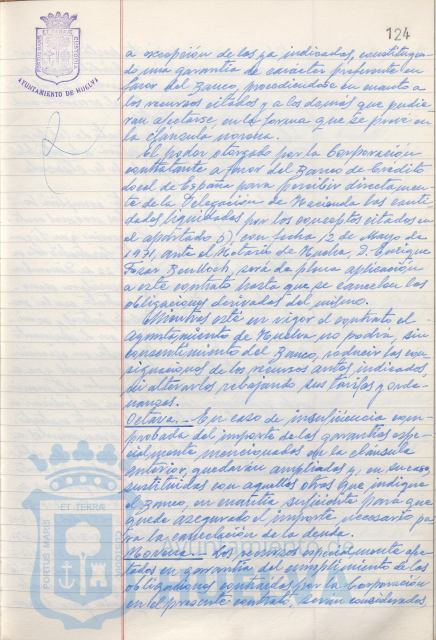 124
AYUNTAMIENTO DE HUELVA
a excepción de los ya indicados, constituyen-
do una garantía de carácter preferente en
favor del Banco, procediéndose en cuanto a
los recursos citados y a los demás que pudie-
ran afectarse en la forma que se prevé en
la cláusula novena.
El poder otorgado por la Corporación
contratante a favor del Banco de Crédito
Local de España para percibir directamen-
te de la Delegación de Hacienda las canti-
dades liquidadas por los conceptos citados en
el apartado b), con fecha 12 de Mayo de
1971, ante el Notario de Huelva, D. Enrique
será de plena aplicación
a este contrato hasta que se cancelen las
obligaciones derivadas del mismo.
Mientras esté en vigor el contrato el
Ayuntamiento de Huelva no podrá, sin
consentimiento del Banco, reducir las con-
signaciones de los recursos antes indicados,
ni alterarlos rebajando sus tarifas y orde-
nanzas.
Octava.- En caso de insuficiencia com-
probada del importe de las garantías espe-
cialmente mencionadas en la cláusula
anterior, quedarán ampliadas y, en su caso
sustituidas con aquellas otras que indique
el Banco, en cuantía suficiente para que
quede asegurado el importe necesario pa-
ra la cancelación de la deuda.
Novena.- Los recursos especialmente afec-
tados en garantía del cumplimiento de las
obligaciones contraídas por la Corporación
en el presente contrato, serán considerados
PORTUS MARIS ET TERRÆ CUSTODIA